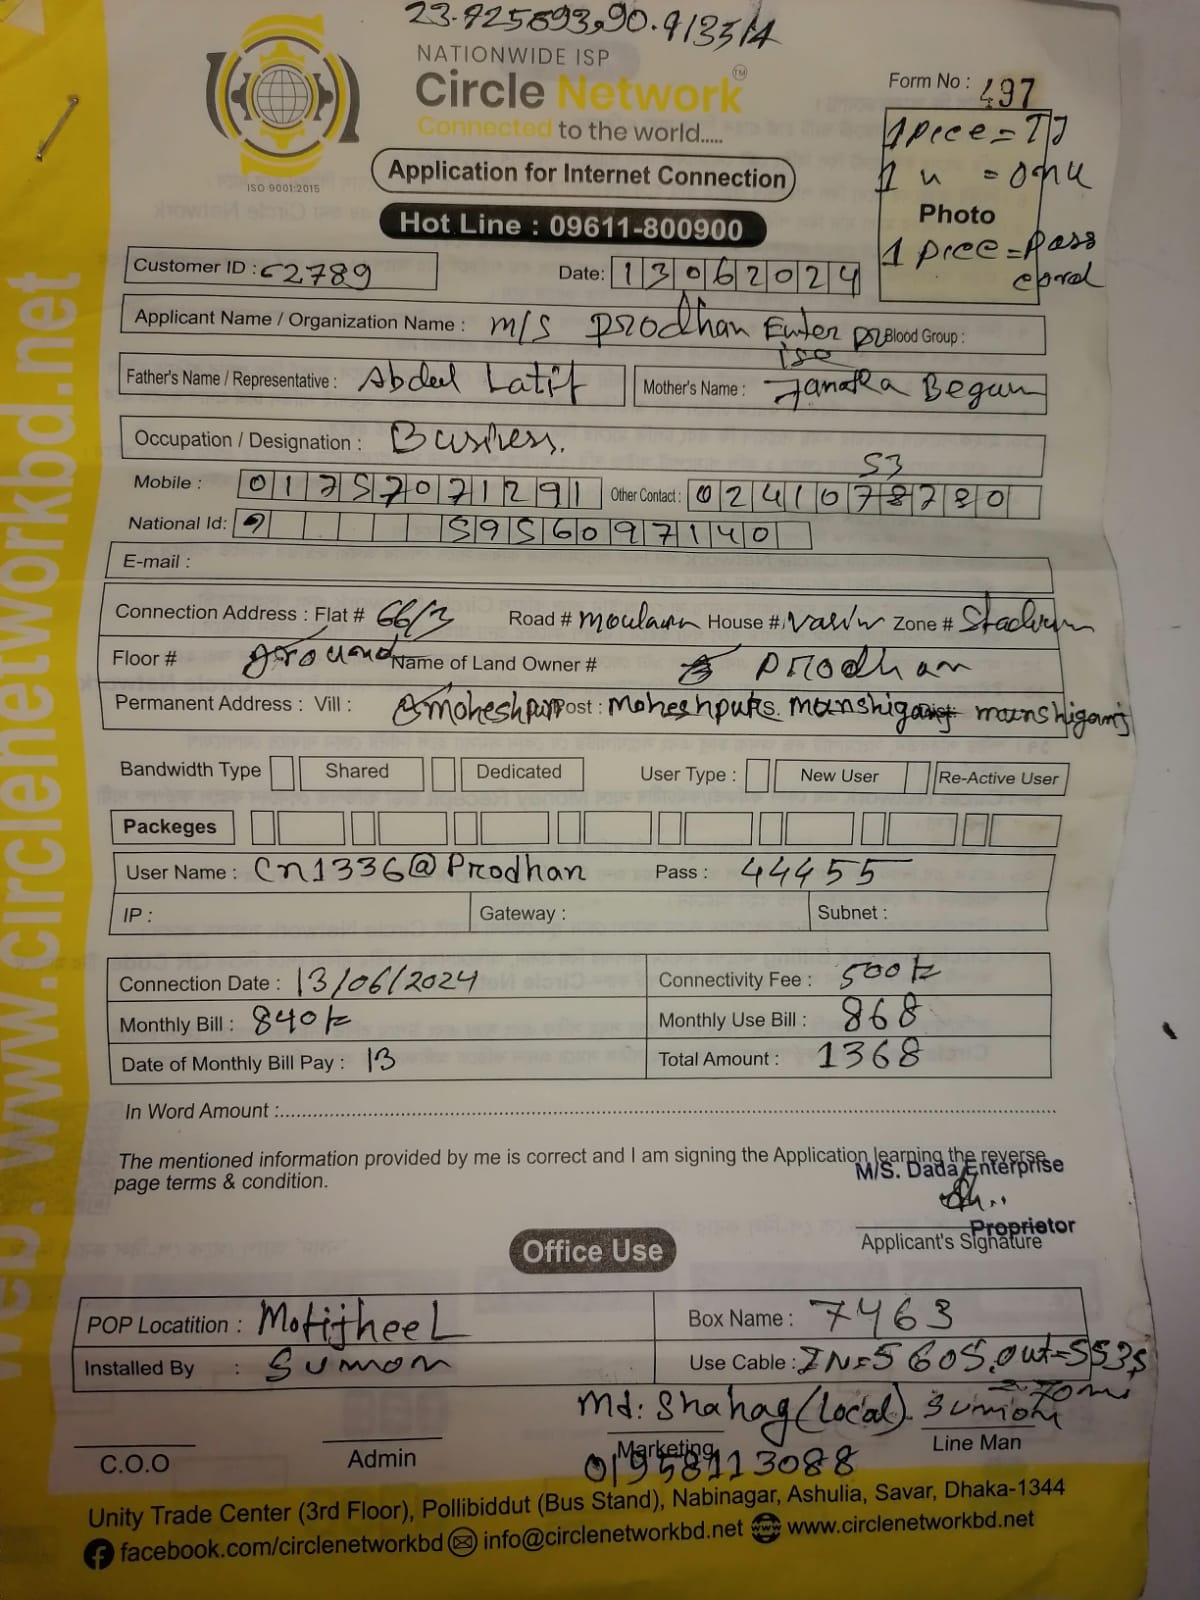 23.925693,90.413514
NATIONWIDE ISP
Circle Network TM
Connected to the world.....
ISO 9001:2015
Application for Internet Connection
Hot Line : 09611-800900
Form No : 497
1 piece = TJ
1 " = onu
Photo
1 piece = pass
Customer ID : 62789
Date: 13062024
Applicant Name / Organization Name : M/S Prodhan Enterprise Blood Group :
Father's Name / Representative : Abdul Latif Mother's Name : Begum
Occupation / Designation : Business.
53
Mobile : 01757071291 Other Contact : 0241078780
National Id: 5956097140
E-mail :
Connection Address : Flat # 66/3 Road # House # Zone # Stadium
Floor # ground Name of Land Owner # Prodhan
Permanent Address : Vill : Moheshpur Post : Moheshpur. Munshiganj Dist Munshiganj
Bandwidth Type Shared Dedicated User Type : New User Re-Active User
Packeges
User Name : Cn1336@Prodhan Pass : 44455
IP : Gateway : Subnet :
Connection Date : 13/06/2024 Connectivity Fee : 500 tk
Monthly Bill : 840 tk Monthly Use Bill : 868
Date of Monthly Bill Pay : 13 Total Amount : 1368
In Word Amount :
The mentioned information provided by me is correct and I am signing the Application learning the reverse
page terms & condition.
M/S. Dada Enterprise
Proprietor
Applicant's Signature
Office Use
POP Locatition : Motijheel Box Name : 7463
Installed By : Sumon Use Cable : IN=5605, Out=5535
=70m
Md: Shahag (Local). Sumon
C.O.O Admin Marketing Line Man
01958113088
Unity Trade Center (3rd Floor), Pollibiddut (Bus Stand), Nabinagar, Ashulia, Savar, Dhaka-1344
facebook.com/circlenetworkbd info@circlenetworkbd.net www.circlenetworkbd.net
web: www.circlenetworkbd.net